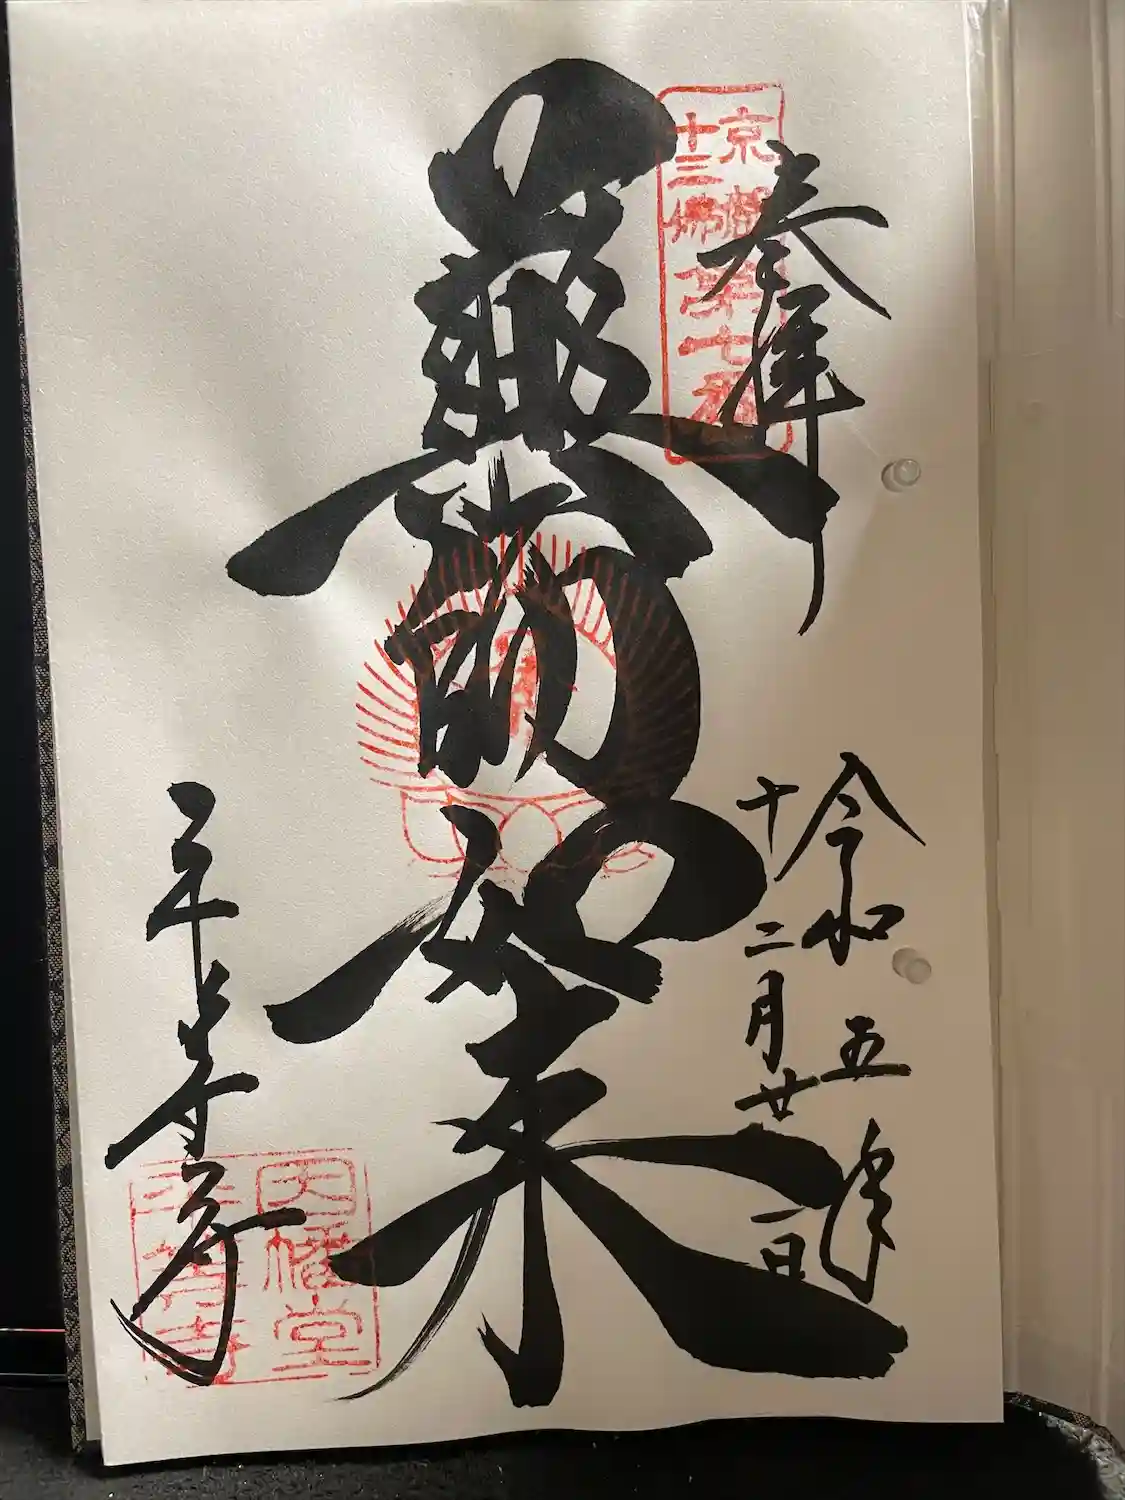 奉拝
京都
十三佛
第七番
令和五年
十二月廿一日
藥師如来
平等寺
因幡堂
平等寺